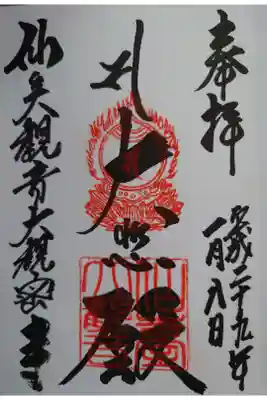 奉拝
平成二十九年
一月八日
大悲殿
仙台大観音大観密寺